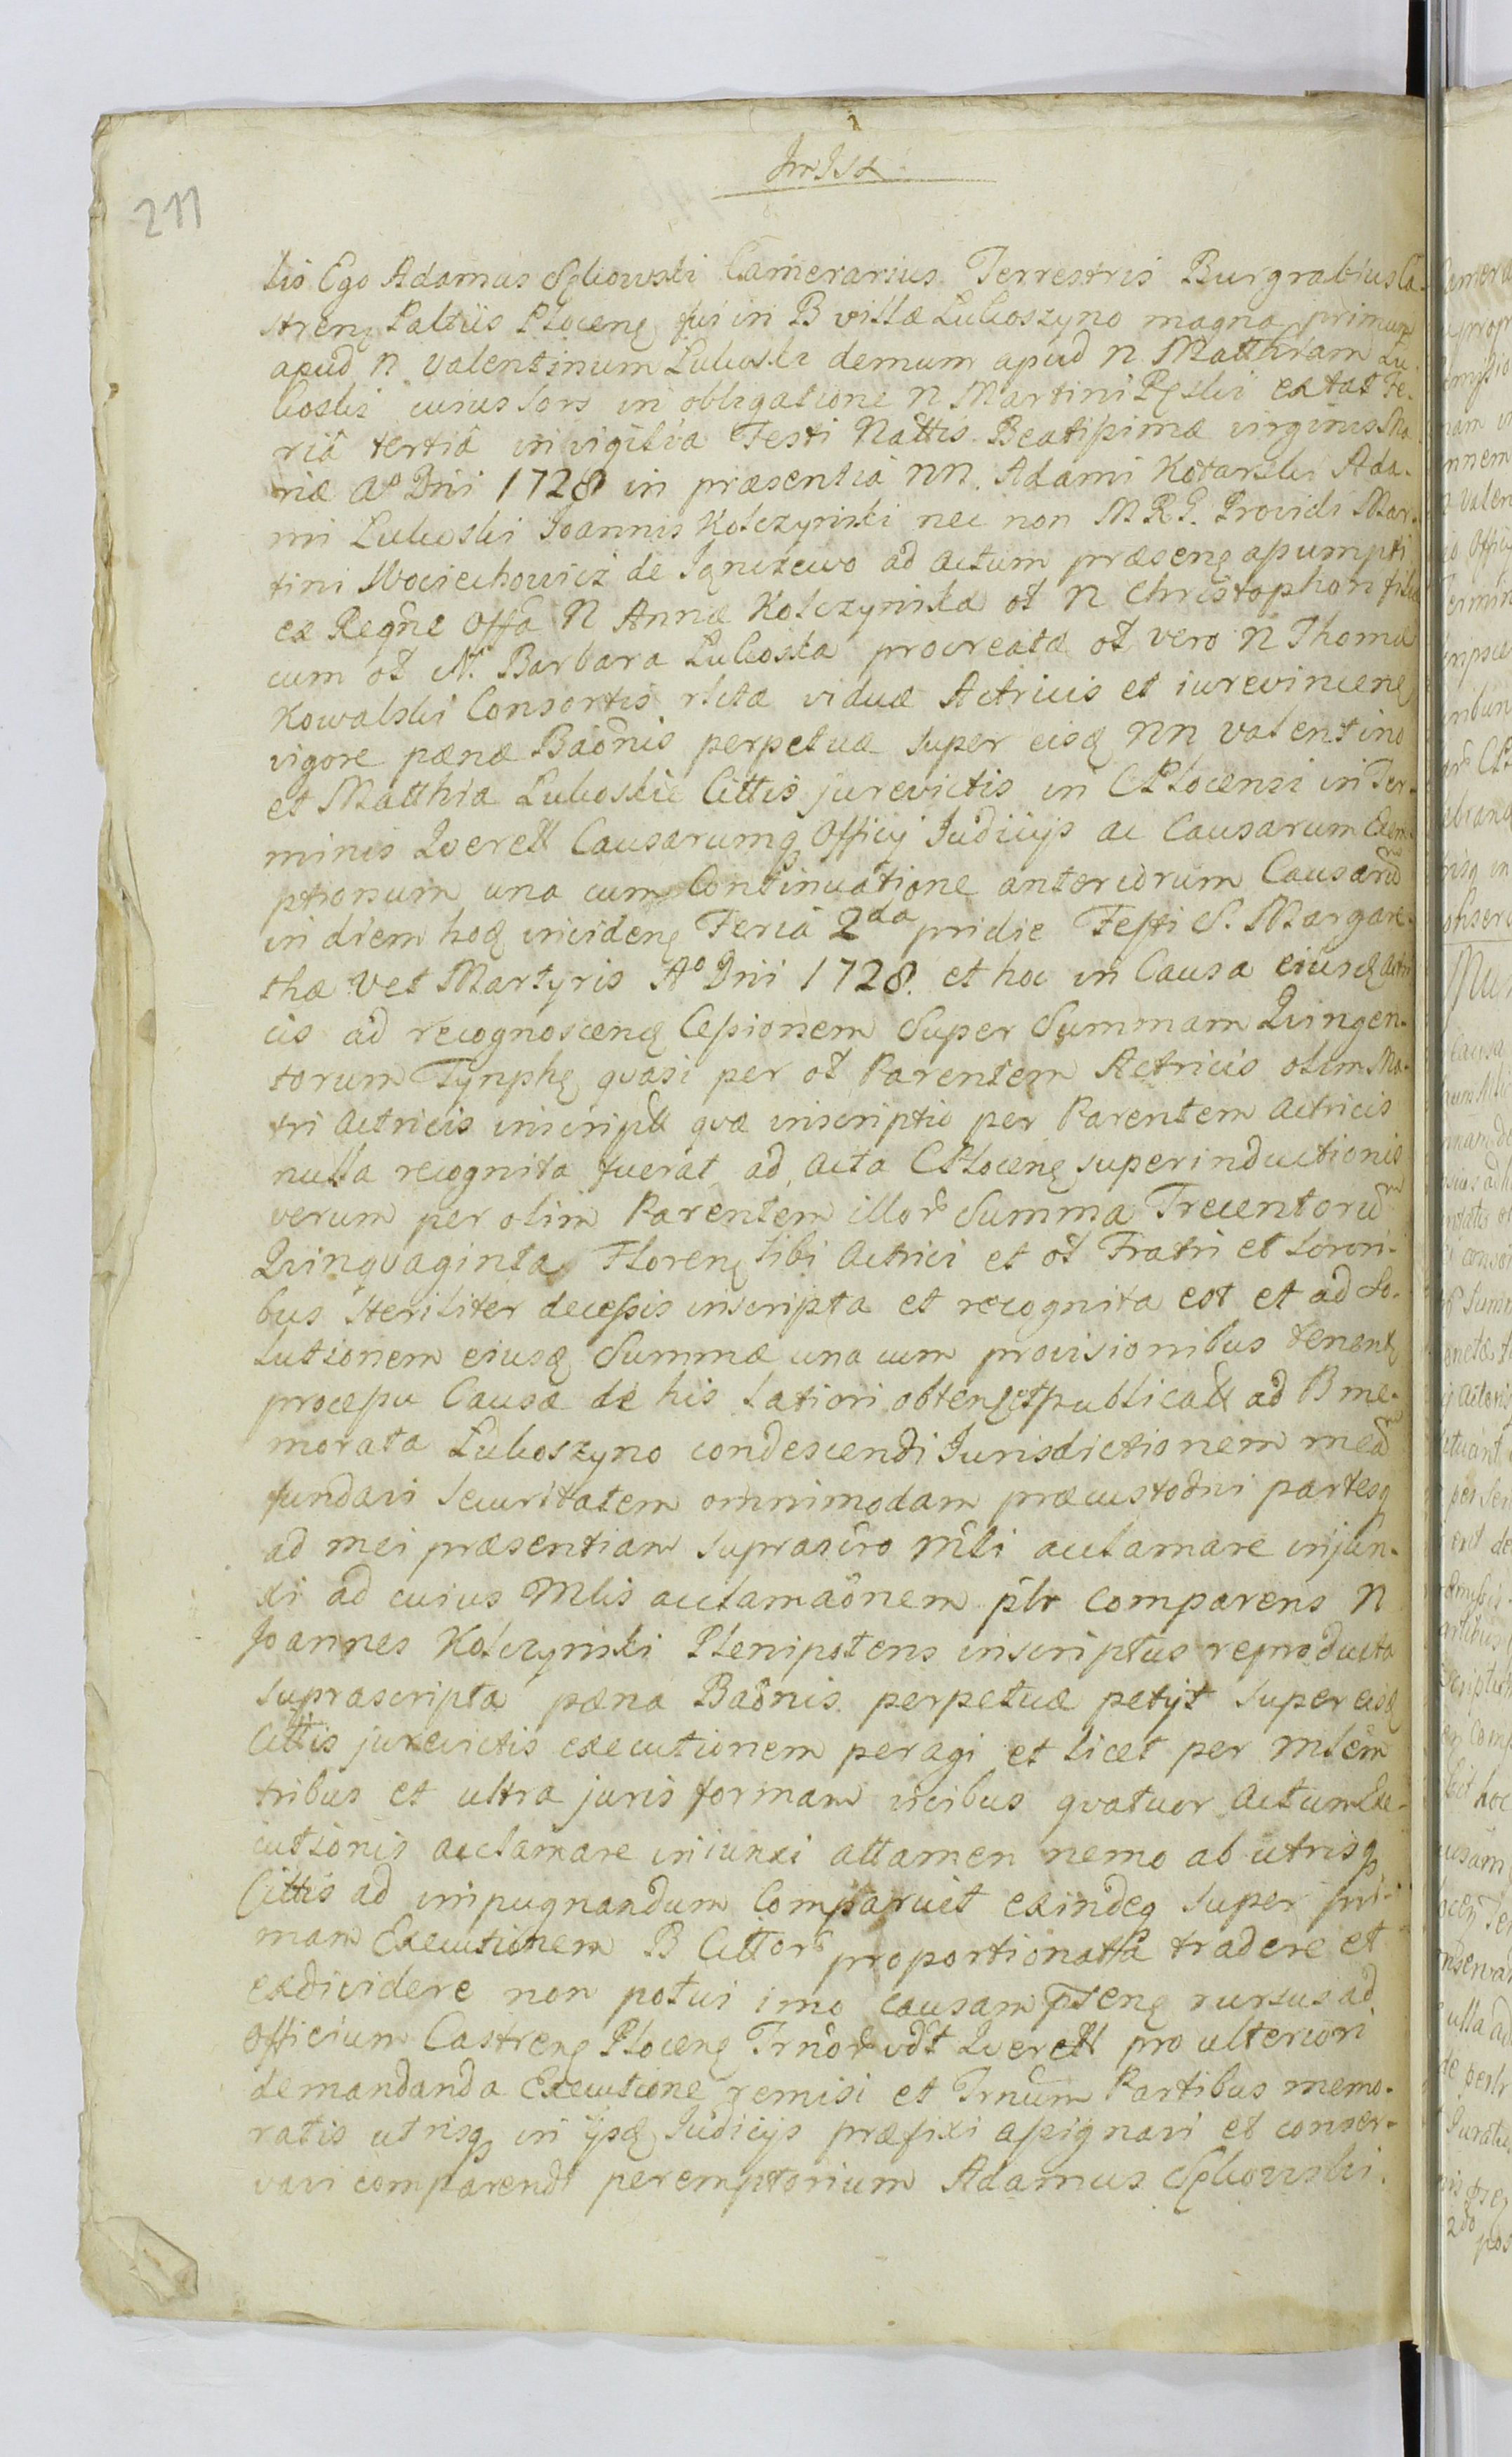 211
lis Ego Adamus Camerarius Terrestris Burgrabius Ca-
stren Paltiis Plocen fui in B villa Lukoszyno magna primum
apud N Valentinum Lukoski demum apud N Matthiam Lu-
koski cuius sors in obligatione N Martini extat Fe-
riâ tertiâ in vigilia Festi Nattis Beatissimæ virginis Ma
riæ Aº Dni 1728 in præsentiâ NN. Adami Kotarski Ada-
mi Lukoski Joannis Kolczynski nec non M R G. Providi Mar-
tini Wociechowicz de ad actum præsens assumpti
ex Reqne Offa N Annæ Kolczynska ol N Christophori filiæ
cum ol N. Barbara Lukoska procreatæ ol vero N Thomæ
Kowalski Consortis rlictæ viduæ Actricis et iurevincenę
vigore pænæ Baonis perpetuæ super eisdę NN Valentino
et Matthia Lukoskie Cittis jurevictis in CPlocensi in Ter-
minis Qverell Causarumq Officij Judicijs ac Causarum Exem-
ptionum una cum Continuatione anteriorum Causaru
in diem hodę incidenę Feria 2da pridie Festi S. Margare-
thæ V et Martyris Aº Dni 1728. et hoc in Causa eiusdę actri
cis ad recognoscendę Cessionem Super Summam Qvingen-
torum Tynphę qvasi per ol Parentem Actricis olim Ma-
tri Actricis inscript qvæ inscriptio per Parentem Actricis
nulla recognita fuerat ad acta CPlocenę superinductionis
verum per olim Parentem illor Summa Trecentoru
Qvinqvaginta Florenę sibi Actrici et ol Fratri et Sorori-
bus steriliter decessis inscripta et recognita est et ad So-
lutionem eiusdę Summæ una cum provisionibus tenent
processu Causæ de his latiori obtenę et publicatt ad B me-
morata Lukoszyno condescendi Jurisdictionem mea
fundavi Securitatem omnimodam præcustodivi partesq
ad mei præsentiam suprascro Mtli acclamare injun-
xi ad cuius Mlis acclamaonem plr comparens N
Joannes Kolczynski Plenipotens inscriptus reproducta
suprascripta pæna Baonis perpetuæ petijt super eisdę
Cittis jurevictis executionem peragi et licet per Mlem
tribus et ultra juris formam vicibus qvatuor actum Exe-
cutionis acclamare iniunxi attamen nemo ab utrisq
Cittis ad impugnandum Comparuit exindeq super pri-
mam Executionem B Cittor proportionatta tradere et
exdividere non potui imo causam pseng rursus ad
Officium Castrenę Plocenę Trnor vdt Qverell pro ulteriori
demandanda Executione remisi et Trnum Partibus memo-
ratis utrisq in ijsdę Judicijs præfixi assignavi et conser-
vavi comparendi peremptorium Adamus